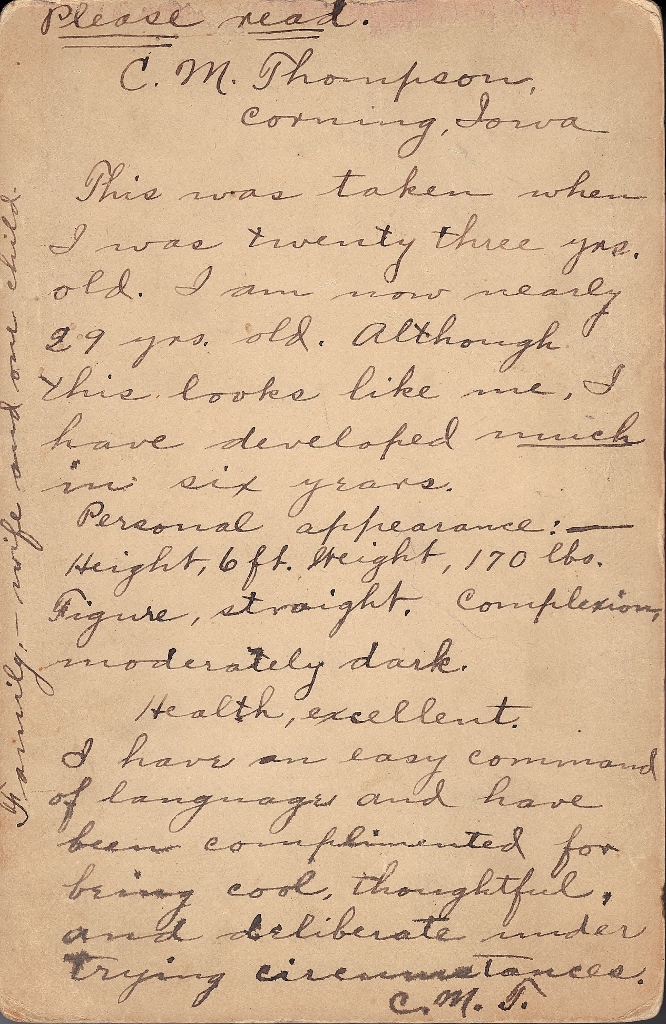 Please read.
C. M. Thompson,
Corning, Iowa
This was taken when
I was twenty three yrs.
old. I am now nearly
29 yrs. old. Although
this looks like me, I
have developed much
in six years.
Personal appearance:—
Height, 6 ft. Weight, 170 lbs.
Figure, straight. Complexion,
moderately dark.
Health, excellent.
I have an easy command
of language and have
been complimented for
being cool, thoughtful,
and deliberate under
trying circumstances.
C. M. T.
Family,— wife and one child.